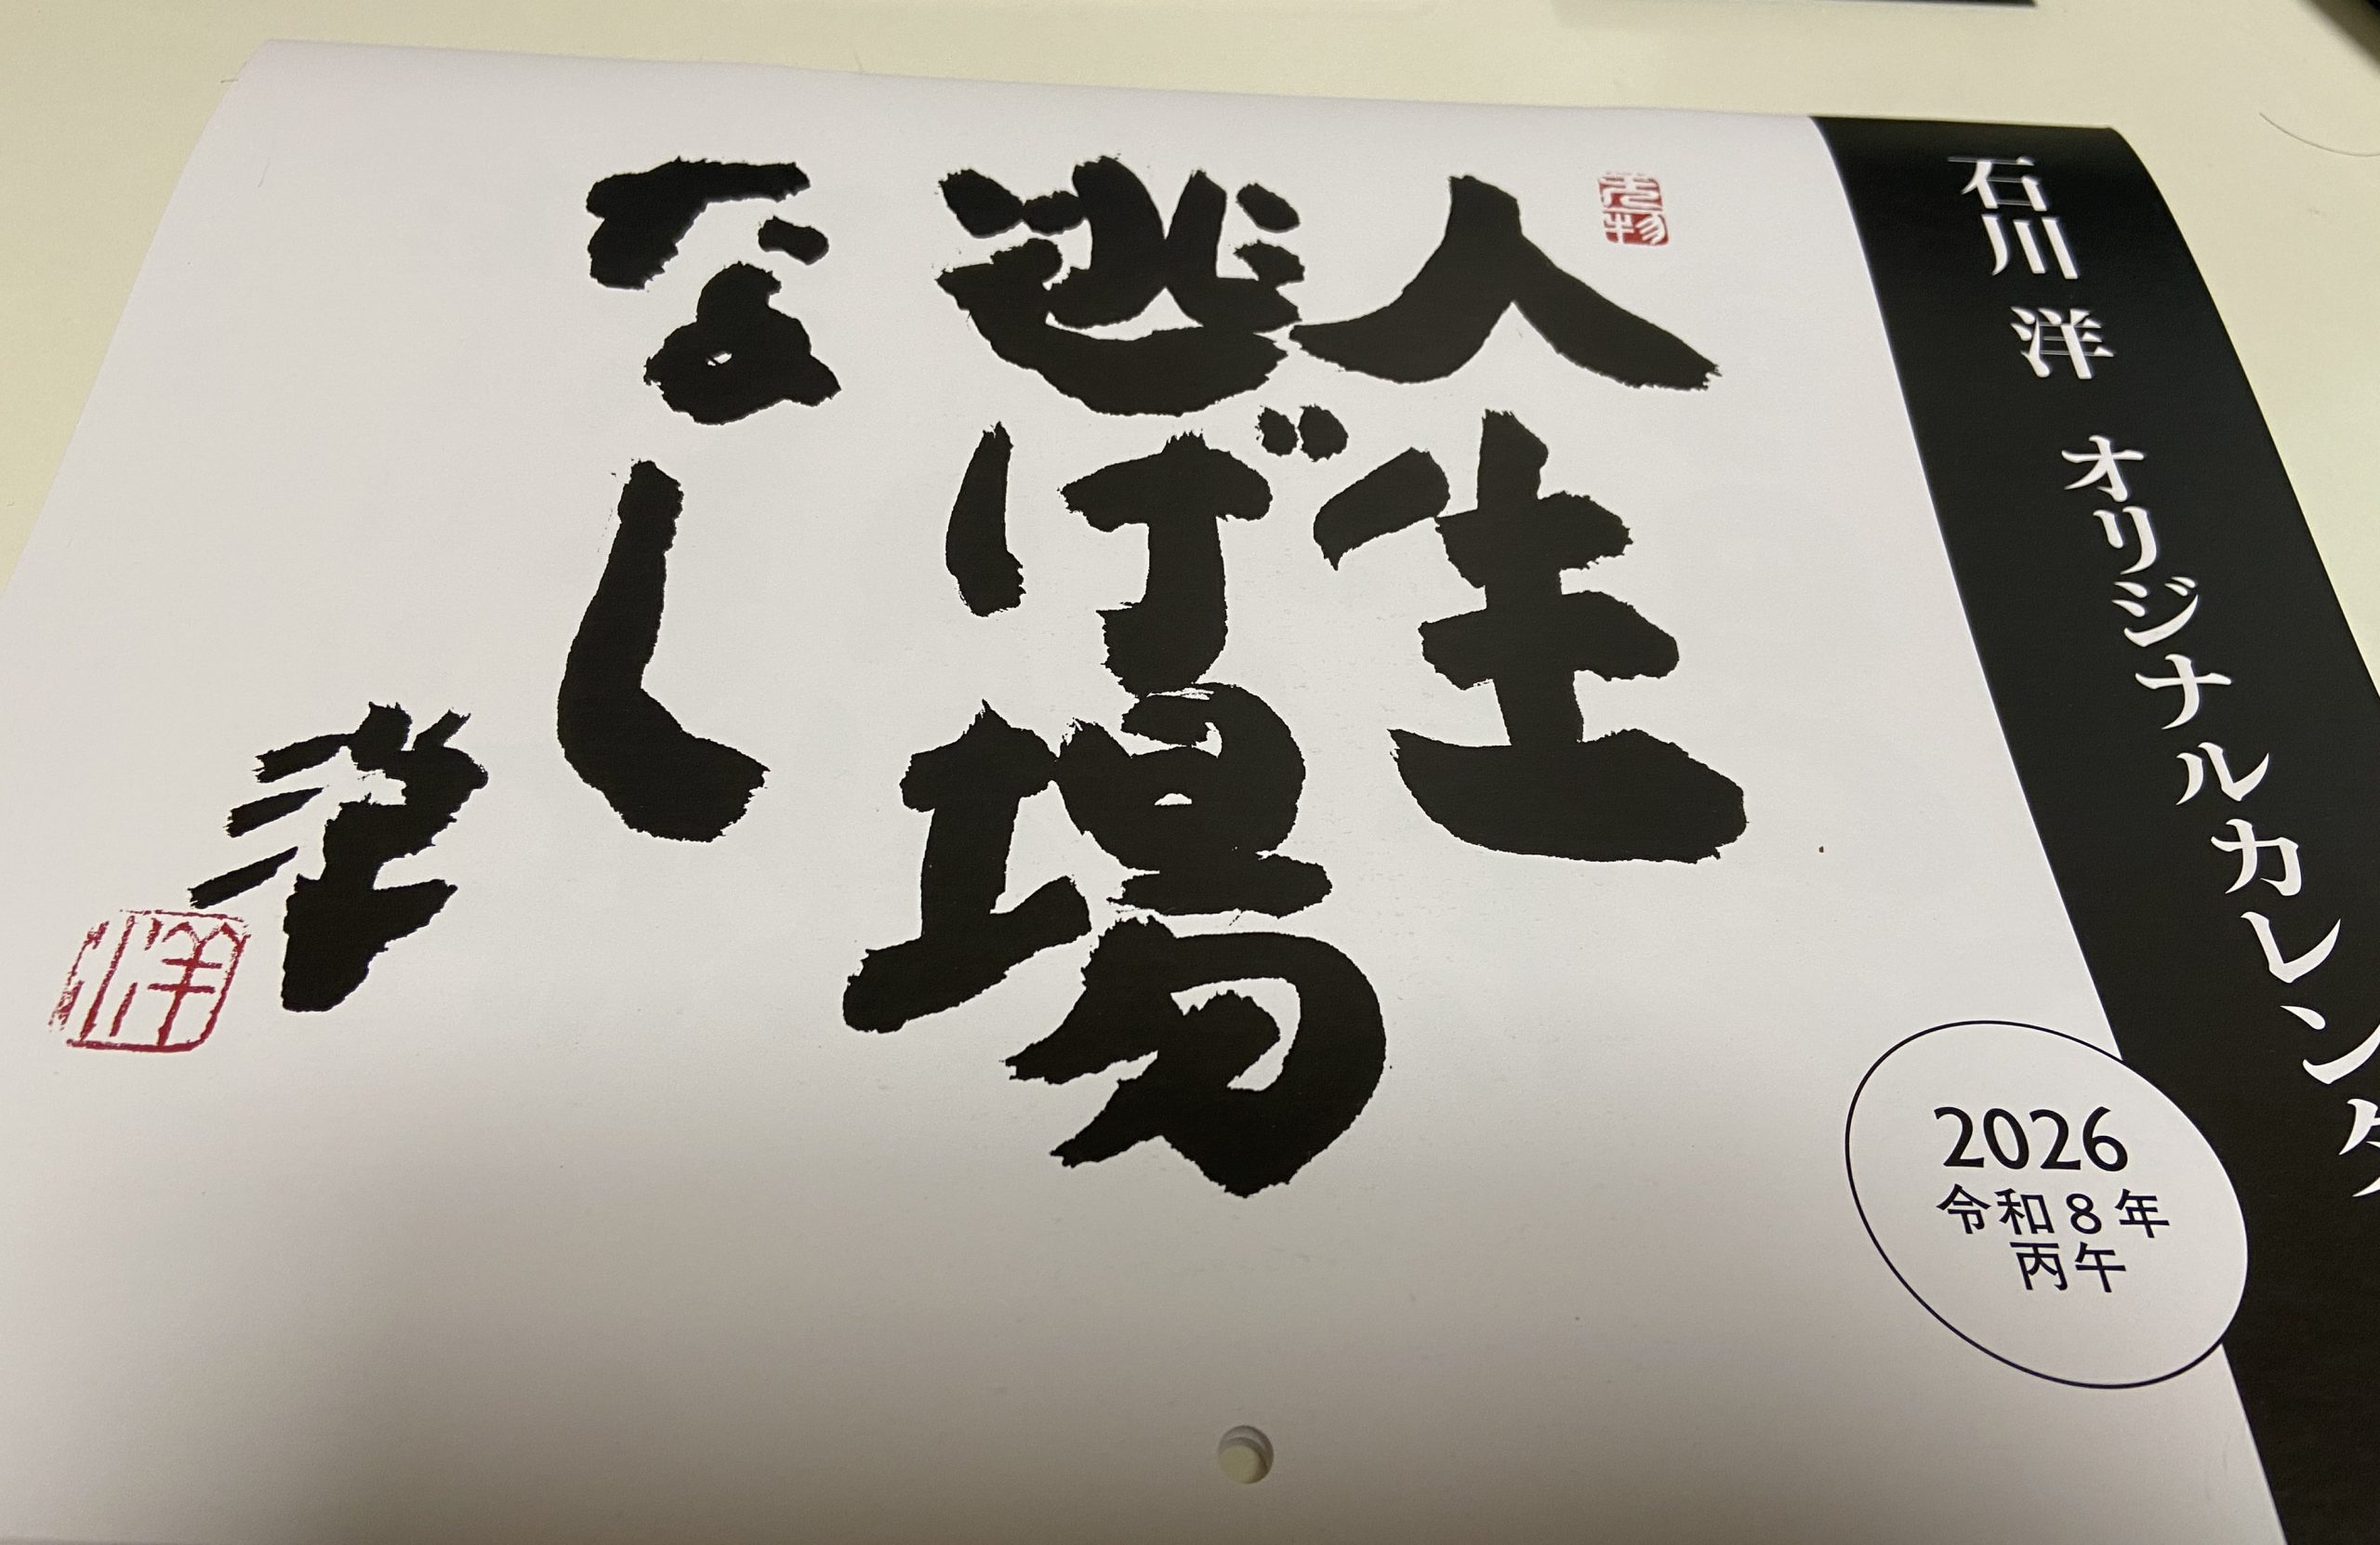 石川 洋 オリジナルカレンダ
人生
逃げ場
なし
洋
洋
2026
令和8年
丙午